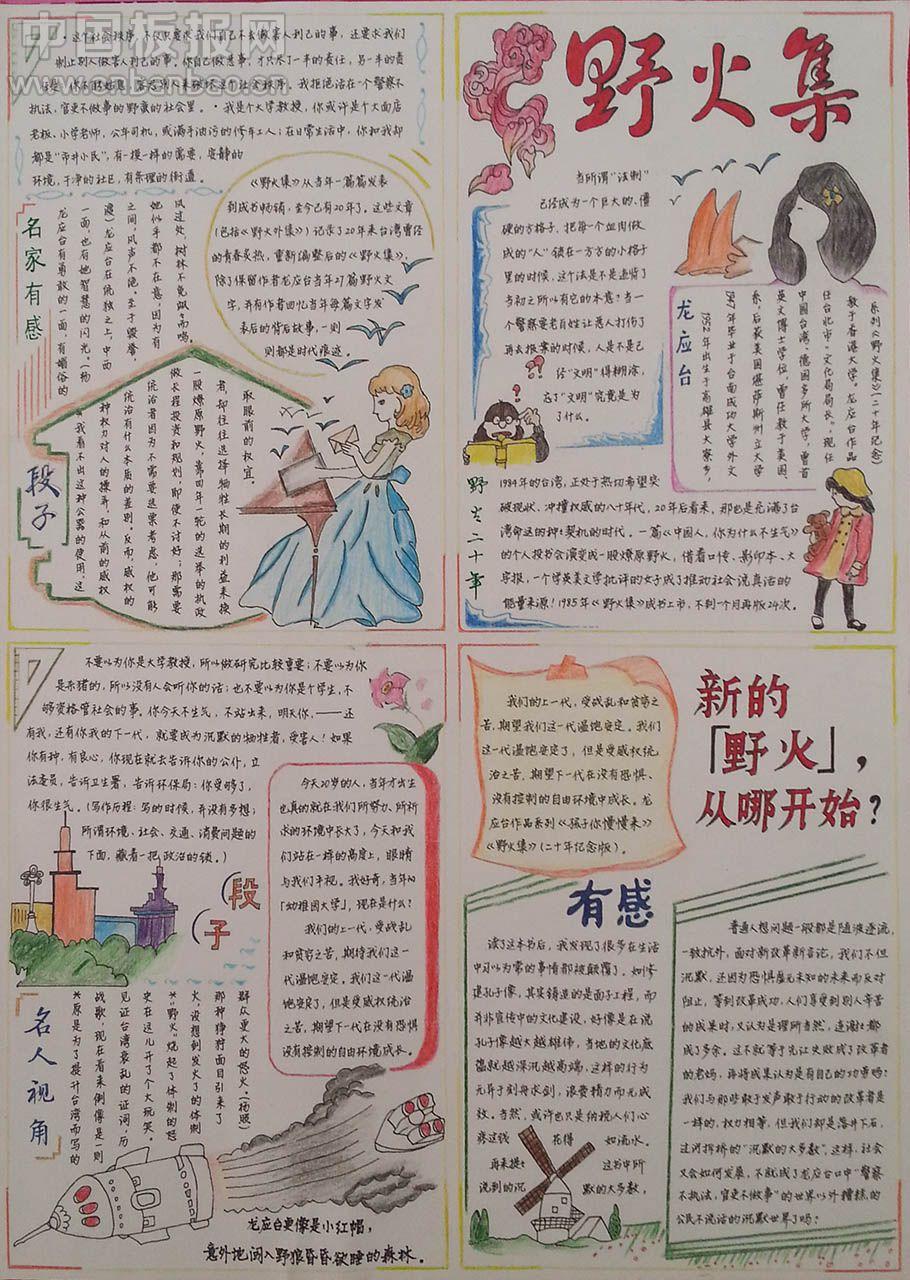 中国板报网
www.cnbanbao.cn
·这个社会秩序,不仅只要求我们自己不去做害人利己的事,还要求我们
制止别人做害人利己的事。你自己做恶事,才只尽了一半的责任,另一半的责
执法,官吏不做事的野蛮的社会里。·我是个大学教授,你或许是个大面店
老板、小学老师,公车司机,或满手油污的修车工人;在日常生活中,你和我却
都是“市井小民”,有一模一样的需要,安静的
环境,干净的社区,有条理的街道。
《野火集》从当年一篇篇发表
到成书畅销,至今已有20年了,这些文章
(包括《野火外集》)记录了20年来台湾曾经
的青春炙热,重新编整后的《野火集》,
除了保留作者龙应台当年27篇野火文
字,并有作者回忆当年每篇文字发
表后的背后故事,一则
则都是时代痕迹。
名家有感
风过处,树林不免飒飒而鸣。
她似乎都不在意,因为有
之间,风声不绝。至于毁誉,
龙应台在统独之上,中西
一面,也有她智慧的闪光。(杨
龙应台有勇敢的一面,有媚俗的
段子
取眼前的权宜。
者,却往往选择牺牲长期的利益来换
一股燎原野火,靠四年一轮的选举的执政
做长程投资和规划,即便不讨好;那需要
统治者因为不需要选票考虑,他可能
统治有什么本质的差别。反而,威权的
种权力对人的操弄,和从前的威权
我看不出这种公器的使用,这
野火集
当所谓“法制”
已经成为一个巨大的、僵
硬的方格子,把每一个血肉做
成的“人”锁在一方方的小格子
里的时候,这个法是不是违背了
当初之所以有它的本意?当一
个警察要老百姓让恶人打伤了
再去报案的时候,人是不是已
经“文明”得糊涂,
忘了“文明”究竟是为
了什么。
龙应台
系列《野火集》(二十年纪念)
教于香港大学。龙应台作品
任台北市“文化局局长”。现任
中国台湾、德国多所大学,曾首
英文博士学位,曾任教于美国、
系,后获美国堪萨斯州立大学
业于台南成功大学外文
1952年出生于高雄县大寮乡,
野火二十年
1984年的台湾,正处于热切希望突
破现状、冲撞权威的八十年代,20年后看来,那也是充满了台
湾命运的种种契机的时代,一篇《中国人,你为什么不生气》
的个人投书会演变成一股燎原野火,借着口传、影印本、大
字报,一个学英美文学批评的女子成了推动社会沉真活的
能量来源!1985年《野火集》成书上市,不到一个月再版24次。
不要以为你是大学教授,所以做研究比较重要;不要以为你
是杀猪的,所以没有人会听你的话;也不要以为你是个学生,不
够资格管社会的事。你今天不生气,不站出来,明天你,——还
有我,还有你我的下一代,就要成为沉默的牺牲者,受害人!如果
你有种,有良心,你现在就去告诉你的公仆,立
法委员,告诉卫生署,告诉环保局:你受够了,
你很生气。(写作历程:写的时候,并没有多想;
所谓环境、社会、交通、消费问题的
下面,藏着一把政治的锁。)
段子
今天20岁的人,当年才出生
也真的就在我们所努力、所祈
求的环境中长大了,今天和我
们站在一样的高度上,眼睛
与我们平视。我好奇,当年的
“幼稚园大学”,现在是什么?
我们的上一代,受战乱
和贫穷之苦,期待我们这一
代温饱安定。我们这一代温
饱安定了,但是受威权统治
之苦,期望下一代在没有恐惧
没有控制的自由环境成长。
名人视角
群众更大的怒火。(杨照)
那种狰狞面目引来了
火,没想到发火了的体制
“野火”烧起了体制的怒
史在这儿开了个大玩笑。
见证台湾衰乱的证词,历
战歌,现在看来倒像是一则
原是为了提升台湾而写的
龙应台更像是小红帽,
意外地闯入野狼昏昏欲睡的森林。
我们的上一代,受战乱和贫穷之
苦,期望我们这一代温饱安定。我们
这一代温饱安定了,但是受威权统
治之苦,期望下一代在没有恐惧、
没有控制的自由环境中成长。龙
应台作品系列《孩子你慢慢来》
《野火集》(二十年纪念版)。
新的
「野火」,
从哪开始?
有感
读了这本书后,我发现了很多在生活
中习以为常的事情都被颠覆了。如修
建孔子像,其实铸造的是面子工程,而
并非宣传中的文化建设,好像是在说
孔子像越大越雄伟,当地的文化底
蕴就越深沉越高端,这样的行为
无异于刻舟求剑,浪费精力而无成
效。当然,或许也只是纳税人们心
疼这钱 花得 如流水。
再来提 这书中所
说到的沉 默的大多数,
普通人想问题一般都是随波逐流,
一致抗外,面对新改革新言论,我们不但
沉默,还因为恐惧虚无未知的未来而反对
阻止,等到改革成功,人们享受到别人辛苦
的成果时,又认为是理所当然,连谢谢都
成了多余。这不就等于先让失败成了改革者
的老妈,再将成果认为是有自己的功劳吗?
我们与那些敢于发声敢于行动的改革者是
一样的,权力相等,但我们却是落井下石,
过河拆桥的“沉默的大多数”,这样,社会
又会如何发展,不就成了龙应台口中“警察
不执法,官吏不做事”的世界以外糟糕的
公民不说话的沉默世界了吗?